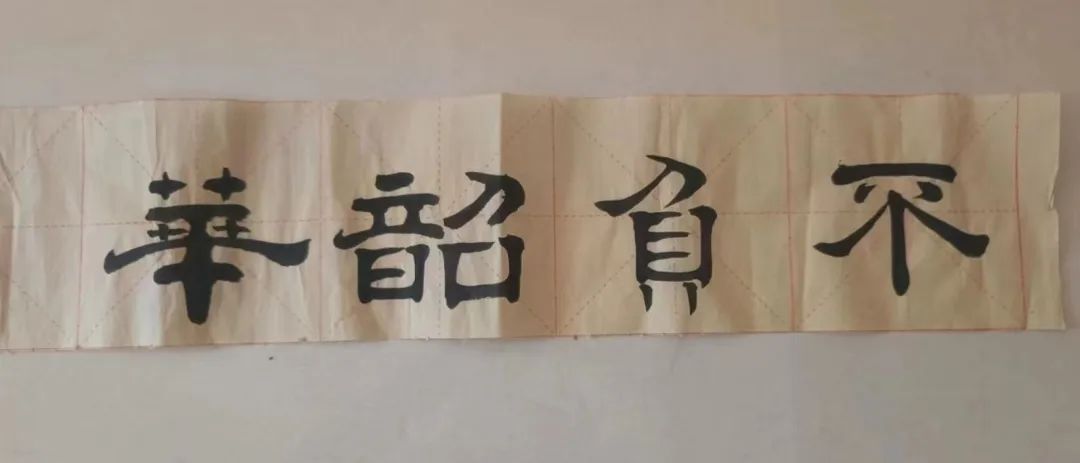 不負韶華